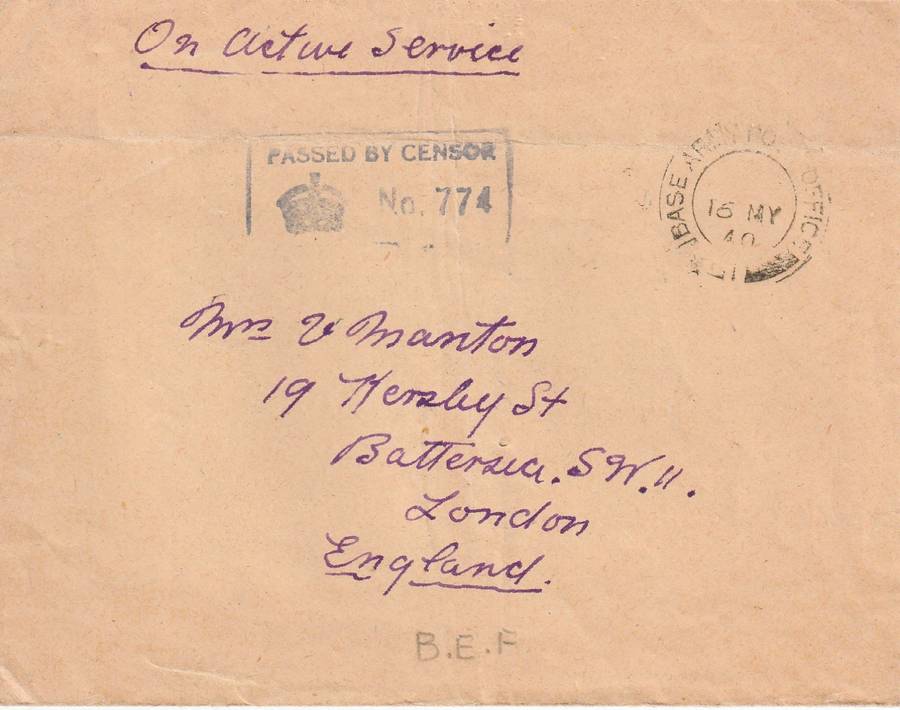 On Active Service
PASSED BY CENSOR
No. 774
BASE ARMY POST OFFICE
16 MY
40
Mrs V Manton
19 Kersley St
Battersea. S.W.11.
London
England.
B.E.F